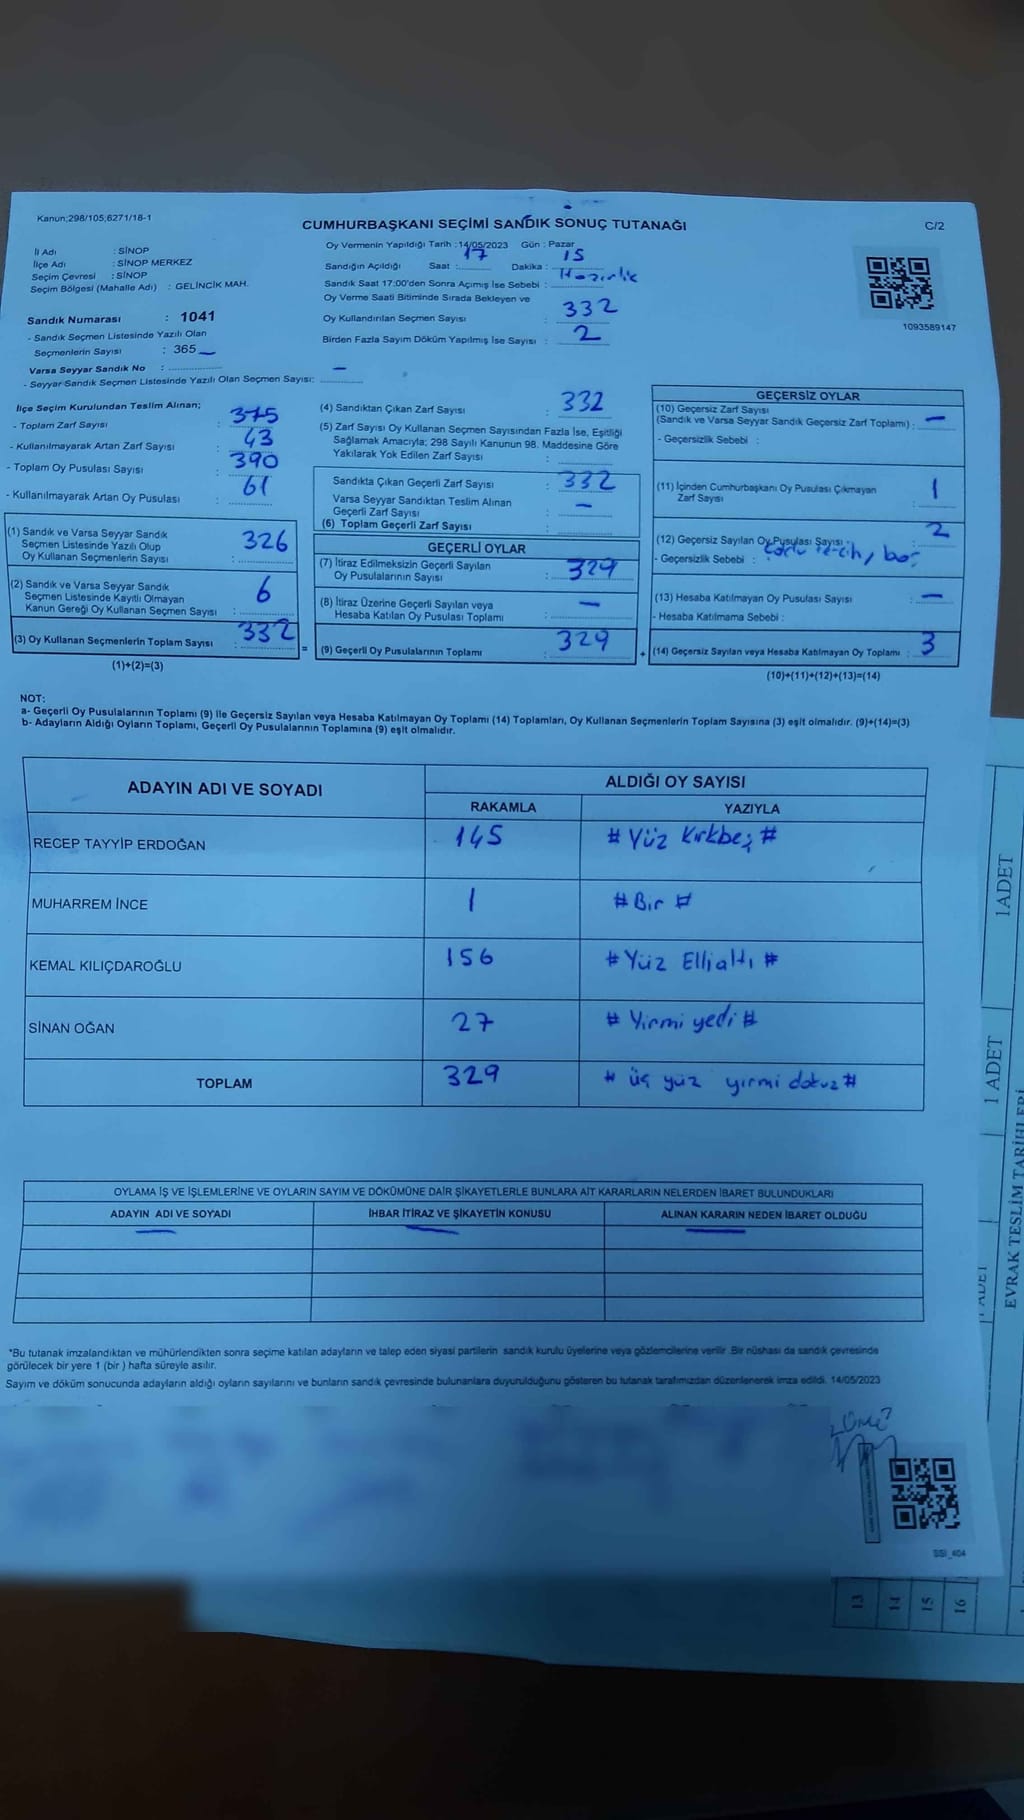 Kanun;298/105;6271/18-1
C/2
CUMHURBAŞKANI SEÇİMİ SANDIK SONUÇ TUTANAĞI
İl Adı : SİNOP
İlçe Adı : SİNOP MERKEZ
Seçim Çevresi : SİNOP
Seçim Bölgesi (Mahalle Adı) : GELİNCİK MAH.
Sandık Numarası : 1041
- Sandık Seçmen Listesinde Yazılı Olan
Seçmenlerin Sayısı : 365
Varsa Seyyar Sandık No : —
- Seyyar Sandık Seçmen Listesinde Yazılı Olan Seçmen Sayısı:
Oy Vermenin Yapıldığı Tarih :14/05/2023 Gün : Pazar
Sandığın Açıldığı Saat : 17 Dakika : 15
Sandık Saat 17:00'den Sonra Açımış İse Sebebi : Hazırlık
Oy Verme Saati Bitiminde Sırada Bekleyen ve
Oy Kullandırılan Seçmen Sayısı : 332
Birden Fazla Sayım Döküm Yapılmış İse Sayısı : 2
1093589147
İlçe Seçim Kurulundan Teslim Alınan;
- Toplam Zarf Sayısı : 375
- Kullanılmayarak Artan Zarf Sayısı : 43
- Toplam Oy Pusulası Sayısı : 390
- Kullanılmayarak Artan Oy Pusulası : 61
(1) Sandık ve Varsa Seyyar Sandık
Seçmen Listesinde Yazılı Olup
Oy Kullanan Seçmenlerin Sayısı : 326
(2) Sandık ve Varsa Seyyar Sandık
Seçmen Listesinde Kayıtlı Olmayan
Kanun Gereği Oy Kullanan Seçmen Sayısı : 6
(3) Oy Kullanan Seçmenlerin Toplam Sayısı : 332
(1)+(2)=(3)
(4) Sandıktan Çıkan Zarf Sayısı : 332
(5) Zarf Sayısı Oy Kullanan Seçmen Sayısından Fazla İse, Eşitliği
Sağlamak Amacıyla; 298 Sayılı Kanunun 98. Maddesine Göre
Yakılarak Yok Edilen Zarf Sayısı :
Sandıkta Çıkan Geçerli Zarf Sayısı : 332
Varsa Seyyar Sandıktan Teslim Alınan
Geçerli Zarf Sayısı : —
(6) Toplam Geçerli Zarf Sayısı :
GEÇERLİ OYLAR
(7) İtiraz Edilmeksizin Geçerli Sayılan
Oy Pusulalarının Sayısı : 329
(8) İtiraz Üzerine Geçerli Sayılan veya
Hesaba Katılan Oy Pusulası Toplamı : —
= (9) Geçerli Oy Pusulalarının Toplamı : 329
GEÇERSİZ OYLAR
(10) Geçersiz Zarf Sayısı
(Sandık ve Varsa Seyyar Sandık Geçersiz Zarf Toplamı) : —
- Geçersizlik Sebebi :
(11) İçinden Cumhurbaşkanı Oy Pusulası Çıkmayan
Zarf Sayısı : 1
(12) Geçersiz Sayılan Oy Pusulası Sayısı : 2
- Geçersizlik Sebebi : tercih, boş
(13) Hesaba Katılmayan Oy Pusulası Sayısı : —
- Hesaba Katılmama Sebebi :
+ (14) Geçersiz Sayılan veya Hesaba Katılmayan Oy Toplamı : 3
(10)+(11)+(12)+(13)=(14)
NOT:
a- Geçerli Oy Pusulalarının Toplamı (9) ile Geçersiz Sayılan veya Hesaba Katılmayan Oy Toplamı (14) Toplamları, Oy Kullanan Seçmenlerin Toplam Sayısına (3) eşit olmalıdır. (9)+(14)=(3)
b- Adayların Aldığı Oyların Toplamı, Geçerli Oy Pusulalarının Toplamına (9) eşit olmalıdır.
ADAYIN ADI VE SOYADI
ALDIĞI OY SAYISI
RAKAMLA YAZIYLA
RECEP TAYYİP ERDOĞAN 145 # Yüz Kırkbeş #
MUHARREM İNCE 1 # Bir #
KEMAL KILIÇDAROĞLU 156 # Yüz Ellialtı #
SİNAN OĞAN 27 # Yirmi yedi #
TOPLAM 329 # üç yüz yirmi dokuz #
OYLAMA İŞ VE İŞLEMLERİNE VE OYLARIN SAYIM VE DÖKÜMÜNE DAİR ŞİKAYETLERLE BUNLARA AİT KARARLARIN NELERDEN İBARET BULUNDUKLARI
ADAYIN ADI VE SOYADI İHBAR İTİRAZ VE ŞİKAYETİN KONUSU ALINAN KARARIN NEDEN İBARET OLDUĞU
*Bu tutanak imzalandıktan ve mühürlendikten sonra seçime katılan adayların ve talep eden siyasi partilerin sandık kurulu üyelerine veya gözlemcilerine verilir .Bir nüshası da sandık çevresinde
görülecek bir yere 1 (bir ) hafta süreyle asılır.
Sayım ve döküm sonucunda adayların aldığı oyların sayılarını ve bunların sandık çevresinde bulunanlara duyurulduğunu gösteren bu tutanak tarafımızdan düzenlenerek imza edildi. 14/05/2023
SSI_404
1ADET
1 ADET
1 ADET
EVRAK TESLİM TARİHLERİ
13
14
15
16